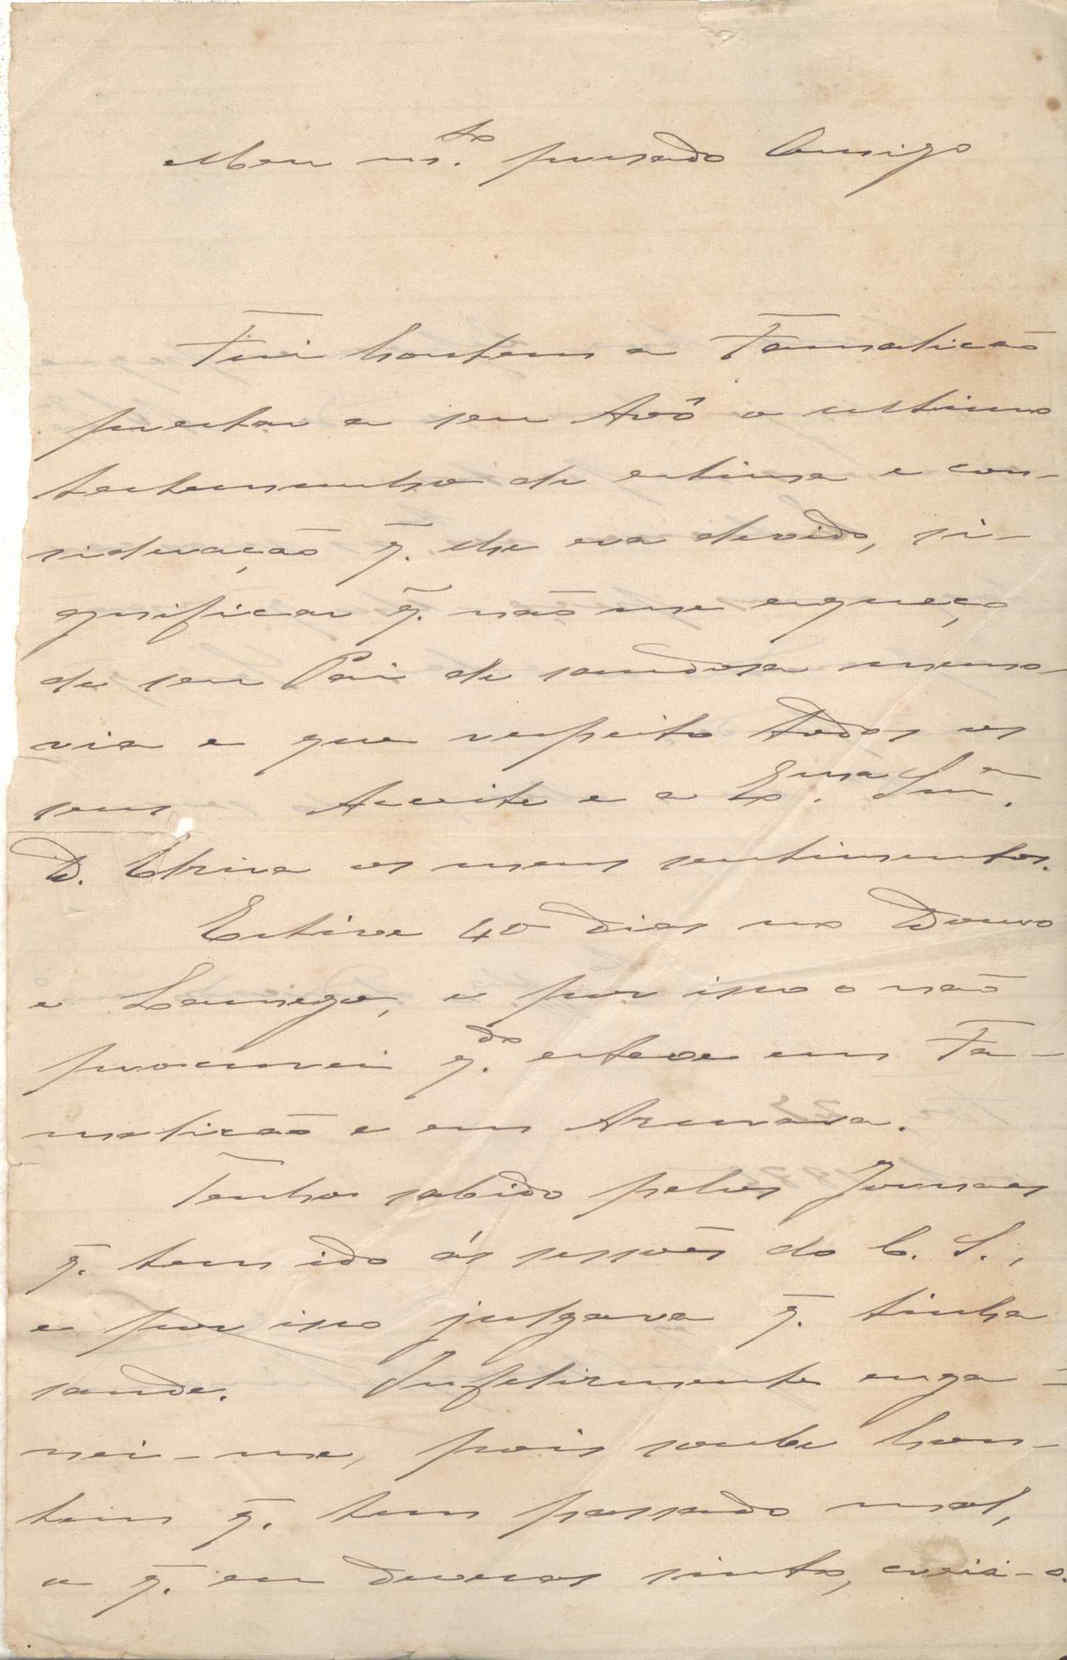 Meu m.to presado Amigo
Fui hontem a Famalicão
prestar a seu Avô o ultimo
testemunho de estima e con-
sideração q. lhe era devido, si-
gnificar q. não me esqueço
de seu Pai de saudosa memo-
ria e que respeito todos os
seus Acceite e a Ex.ma Snr.a
D. os meus sentimentos.
Estive 40 dias no Douro
e Lamego, e por isso o não
procurei q.do esteve em Fa-
malicão e em
Tenho sabido pelos Jornaes
q. tem ido ás sessões do C. S.,
e por isso julgava q. tinha
saude. Infelizmente enga-
nei-me, pois soube hon-
tem q. tem passado mal,
o q. eu deveras sinto, creia-o.